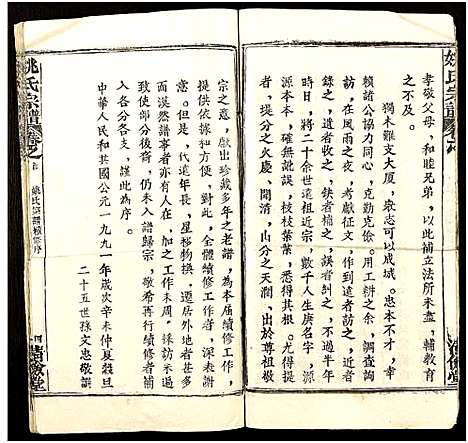 姚氏宗譜
孝敬父母，和睦兄弟，以此補立法所未盡，輔教育
之不及。
獨木難支大厦，眾志可以成城。忠本不才，幸
賴諸公協力同心，克勤克儉。用工耕之餘，或
在風雨之夜，考獻征文，作到遠者訪之，近者
錄之，遺者收之，缺者補之，誤者糾之，不過半年
時日，將二十余世遠近宗親，數千人生庚名字，源
源本本，確無訛誤，枝枝葉葉，悉得其根。尤得提
倡孝道，久慶
清明，出分之天潤，出於貢
宗之意，獻出珍藏多年之老譜，為本屆續修工
提供樣板。為此，我代表全體續修工作者，深表謝
意。但是，年代遠久，星移物換，遷居外地者有之
而漠然譜事亦有人在，加之工作未周，採訪未遍
致使部分裔後，仍未入譜歸宗，敬希再行續修者
入各分各支，為此序。
中華人民和共國公元一九九一年歲次辛未仲夏穀旦
二十五世孫文忠敬譔
姚氏宗譜
卷之首
姚氏宗譜續修序
四